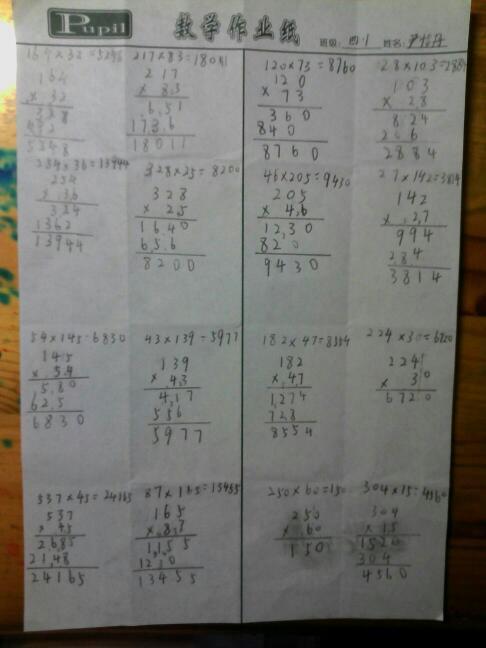 Pupil 数学作业纸 班级: 四.1 姓名:
164×32=5248 217×83=18011 120×73=8760 28×103=2884
164 217 120 103
×32 ×83 ×73 ×28
328 651 360 824
492 1736 840 206
5248 18011 8760 2884
254×36=13944 328×25=8200 46×205=9430 27×142=3814
254 328 205 142
×36 ×25 ×46 ×27
384 1640 1230 994
1362 656 820 284
13944 8200 9430 3814
54×145=6830 43×139=5977 182×47=8554 224×30=6720
145 139 182 224
×54 ×43 ×47 ×30
580 417 1274 6720
625 556 728
6830 5977 8554
537×45=24165 87×165=13455 250×60=150 304×15=4560
537 165 250 304
×45 ×87 ×60 ×15
2685 1155 150 1520
2148 1230 304
24165 13455 4560